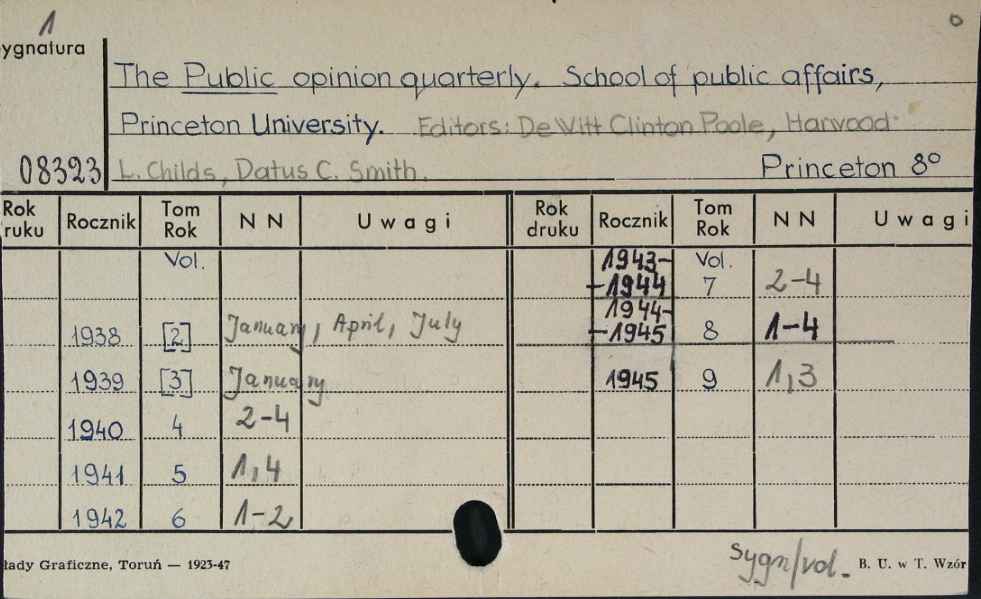 1
o
ygnatura
The Public opinion quarterly. School of public affairs,
Princeton University. Editors: De Witt Clinton Poole, Harwood
08323 L. Childs, Datus C. Smith. Princeton 8°
Rok ruku Rocznik Tom Rok N N Uwagi Rok druku Rocznik Tom Rok N N Uwagi
Vol. 1943- -1944 Vol. 7 2-4
1938 [2] January, April, July 1944- -1945 8 1-4
1939 [3] January 1945 9 1,3
1940 4 2-4
1941 5 1,4
1942 6 1-2
łady Graficzne, Toruń — 1923-47 Sygn/vol. B. U. w T. Wzór